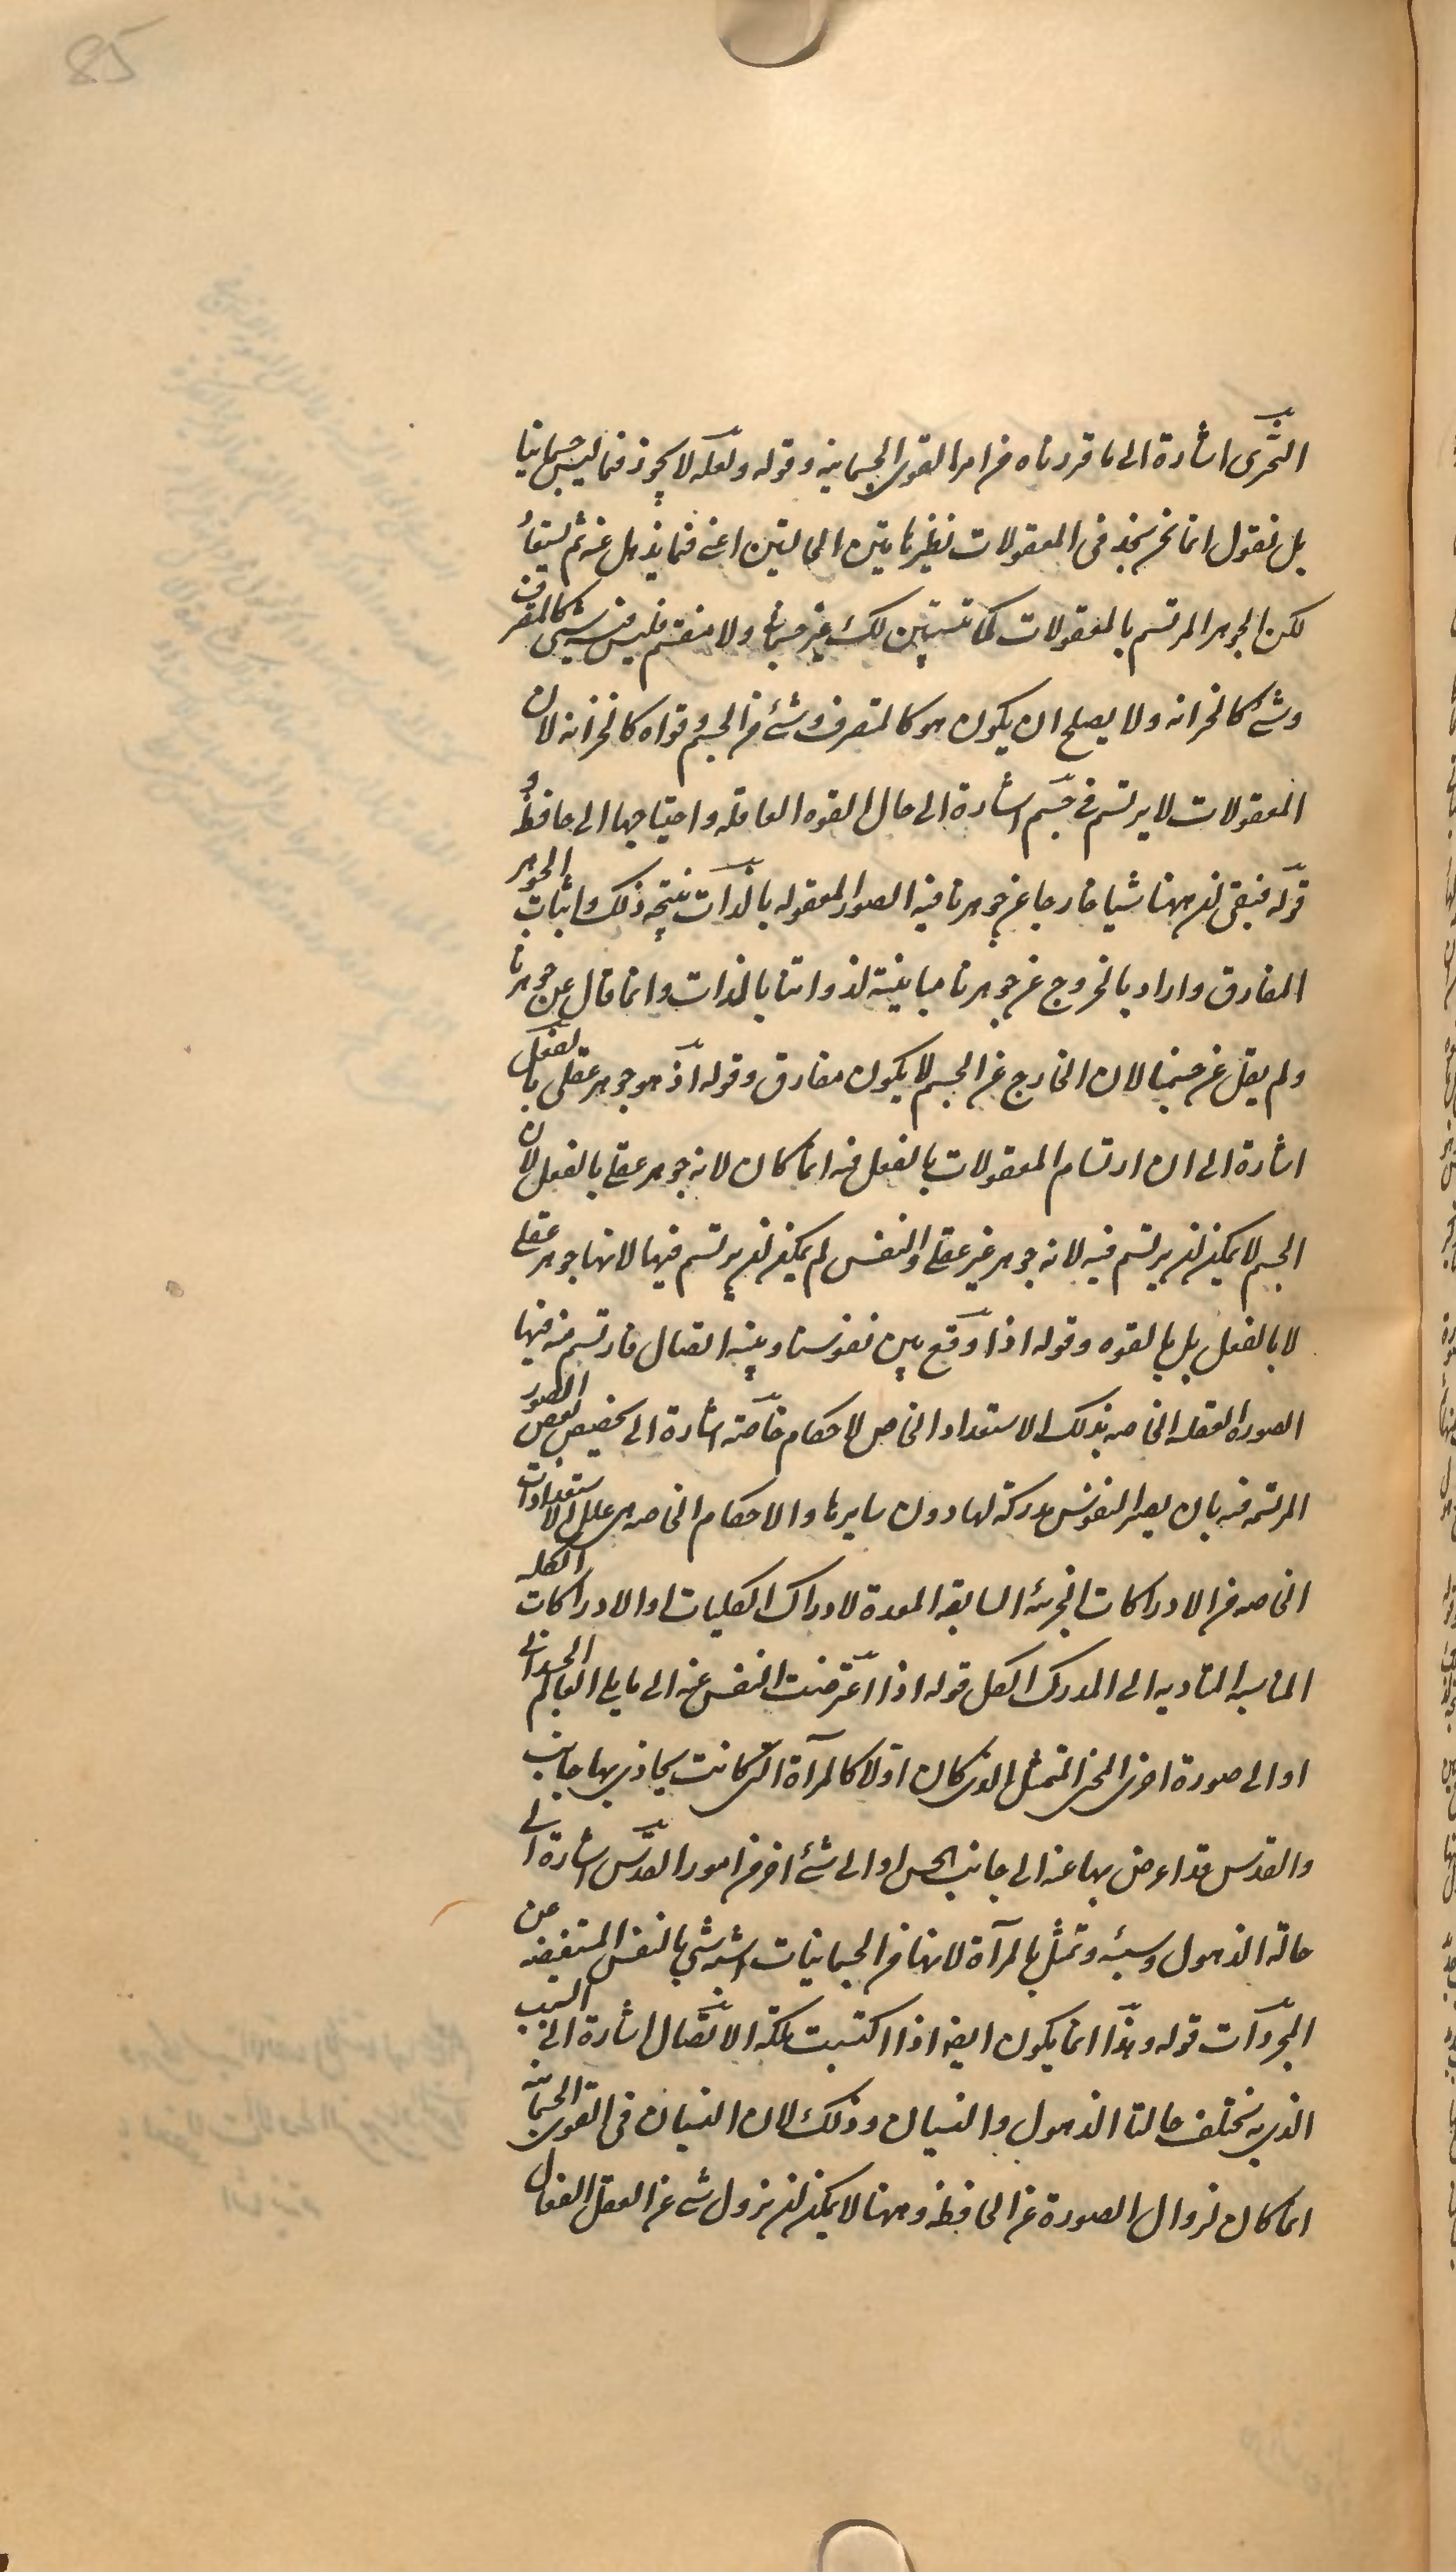 85
التجزى اشارة الى ما قررناه من امر القوى الجسمانيه وقوله ولعله لا يجوز فيما ليس جسمانيا
بل نقول انما نحن نجد فى المعقولات نظير هاتين الحالتين اعنى فيما يذهل عنه ثم يستعاد
لكن الجوهر المرتسم بالمعقولات كما تبين لك غير جسمانى ولا منقسم فليس فيه شيئ كالمتصرف
وشئ كالخزانه ولا يصلح ان يكون هو كالمتصرف وشئ من الجسم وقواه كالخزانه لان
المعقولات لا يرتسم فى جسم اشارة الى حال القوه العاقله واحتياجها الى حافظ و
قوله فبقى ان ههنا شيا خارجا عن جوهرنا فيه الصور المعقوله بالذات نتيجه ذلك واثبات الجوهر
المفارق واراد بالخروج عن جوهرنا مباينته لذواتنا بالذات وانما قال عن جوهرنا
ولم يقل عن جسمنا لان الخارج عن الجسم لا يكون مفارق وقوله اذ هو جوهر عقلى بالفعل
اشارة الى ان ارتسام المعقولات بالفعل فيه انما كان لانه جوهر عقلى بالفعل لان
الجسم لا يمكن ان يرتسم فيه لانه جوهر غير عقلى والنفس لم يمكن ان يرتسم فيها لانها جوهر عقلى
لا بالفعل بل بالقوه وقوله اذا وقع بين نفوسنا وبينه اتصال فارتسم منه فيها
الصوره العقليه الخاصه بذلك الاستعداد الخاص لاحكام خاصة اشارة الى تخصيص بعض الصور
المرتسمه فيه بان يصير النفوس مدركة لها دون سايرها والاحكام الخاصه هى علل الاستعدادات
الخاصه من الادراكات الجزئيه السابقه المعدة لادراك الكليات او الادراكات الكليه
المناسبه المتاديه الى المدرك الكلى قوله اذا اعرضت النفس عنه الى ما يلى العالم الجسدانى
او الى صورة اخرى انمحى المتمثل الذى كان اولا كالمرآة التى كانت يحاذى بها جانب
والقدس قد اعرض بها عنه الى جانب الحس او الى شئ اخر من امور القدس اشارة الى
حالة الذهول وسببه وتمثل بالمرآة لانها من الجسمانيات اشبه شئ بالنفس المستفيضه عن
المجردات قوله وهذا انما يكون ايضا اذا اكتسبت ملكة الاتصال اشارة الى السبب
الذى به يختلف حالتا الذهول والنسيان وذلك لان النسيان فى القوى الجسمانيه
انما كان لزوال الصورة عن الحافظه وههنا لا يمكن ان يزول شئ عن العقل الفعال